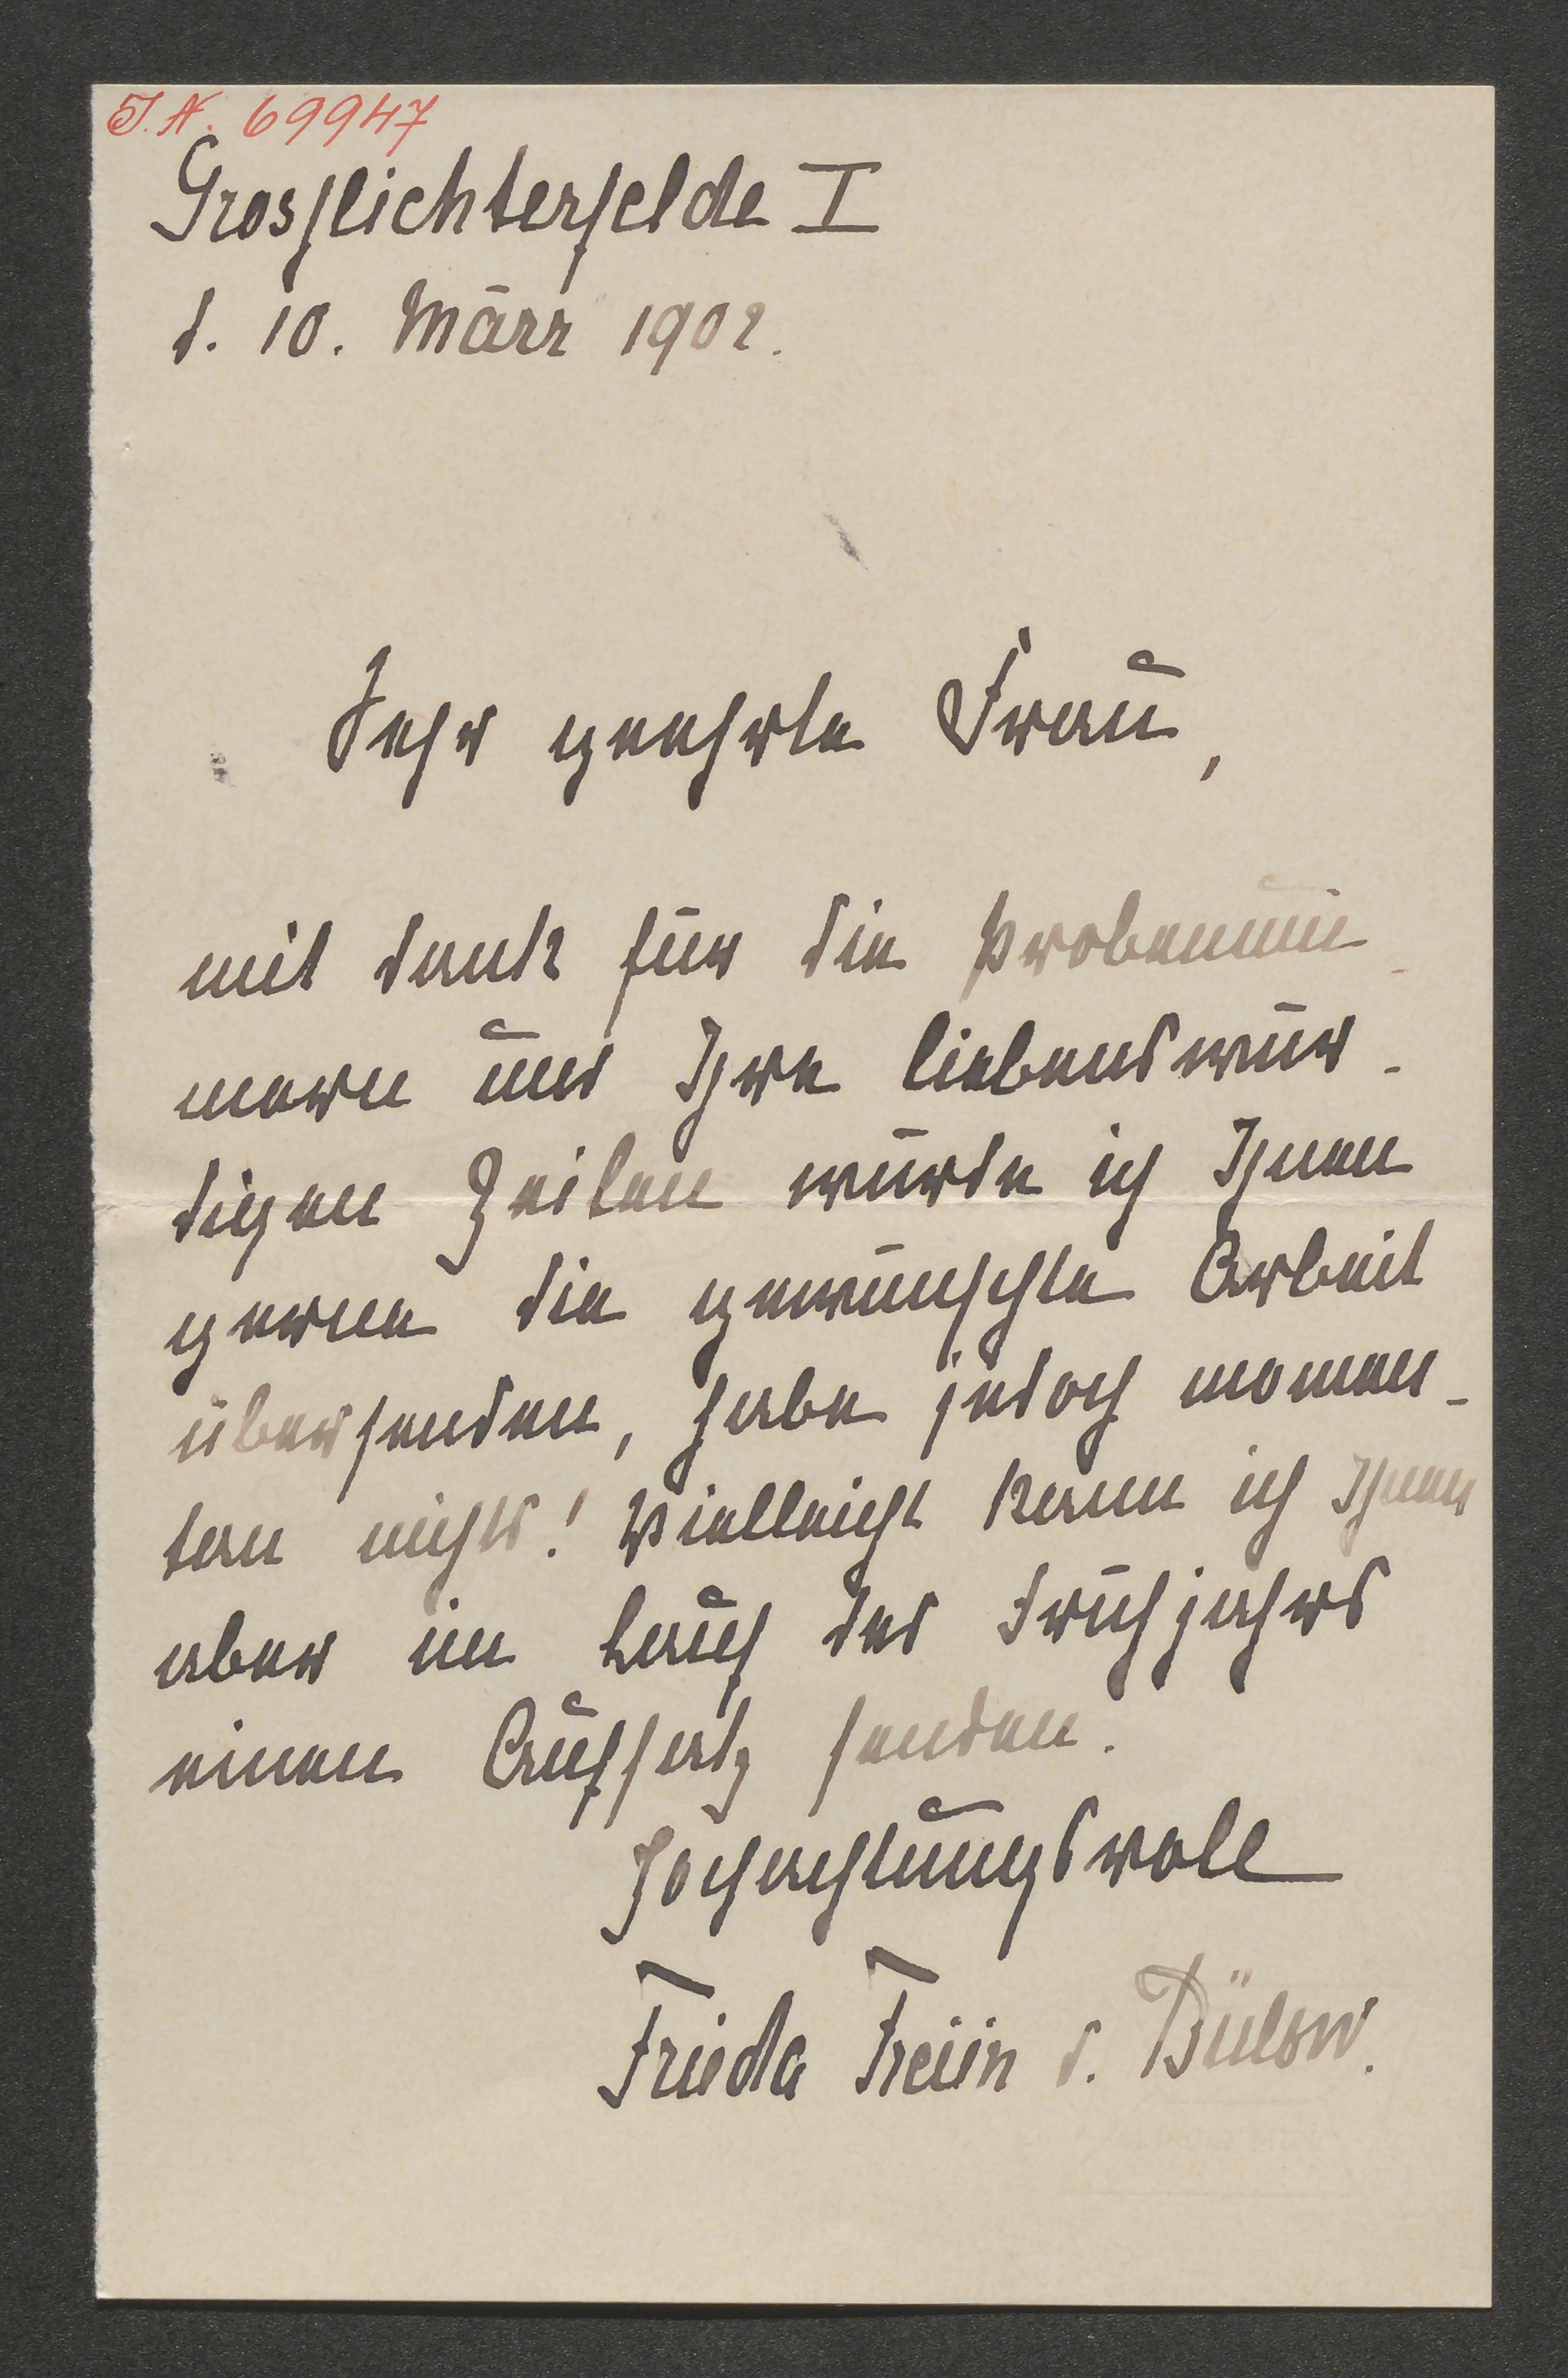 I.N. 69947
Grosslichterfelde I
d. 10. März 1902.
Sehr geehrte Frau,
mit dank für die Probenum-
mern und Ihre liebenswür-
digen Zeilen würde ich Ihnen
gerne die gewünschte Arbeit
übersenden, habe jedoch momen-
tan nichts! Vielleicht kann ich Ihnen
aber im Lauf des Frühjahrs
einen Aufsatz senden.
Hochachtungsvoll
Frieda Freiin v. Bülow.